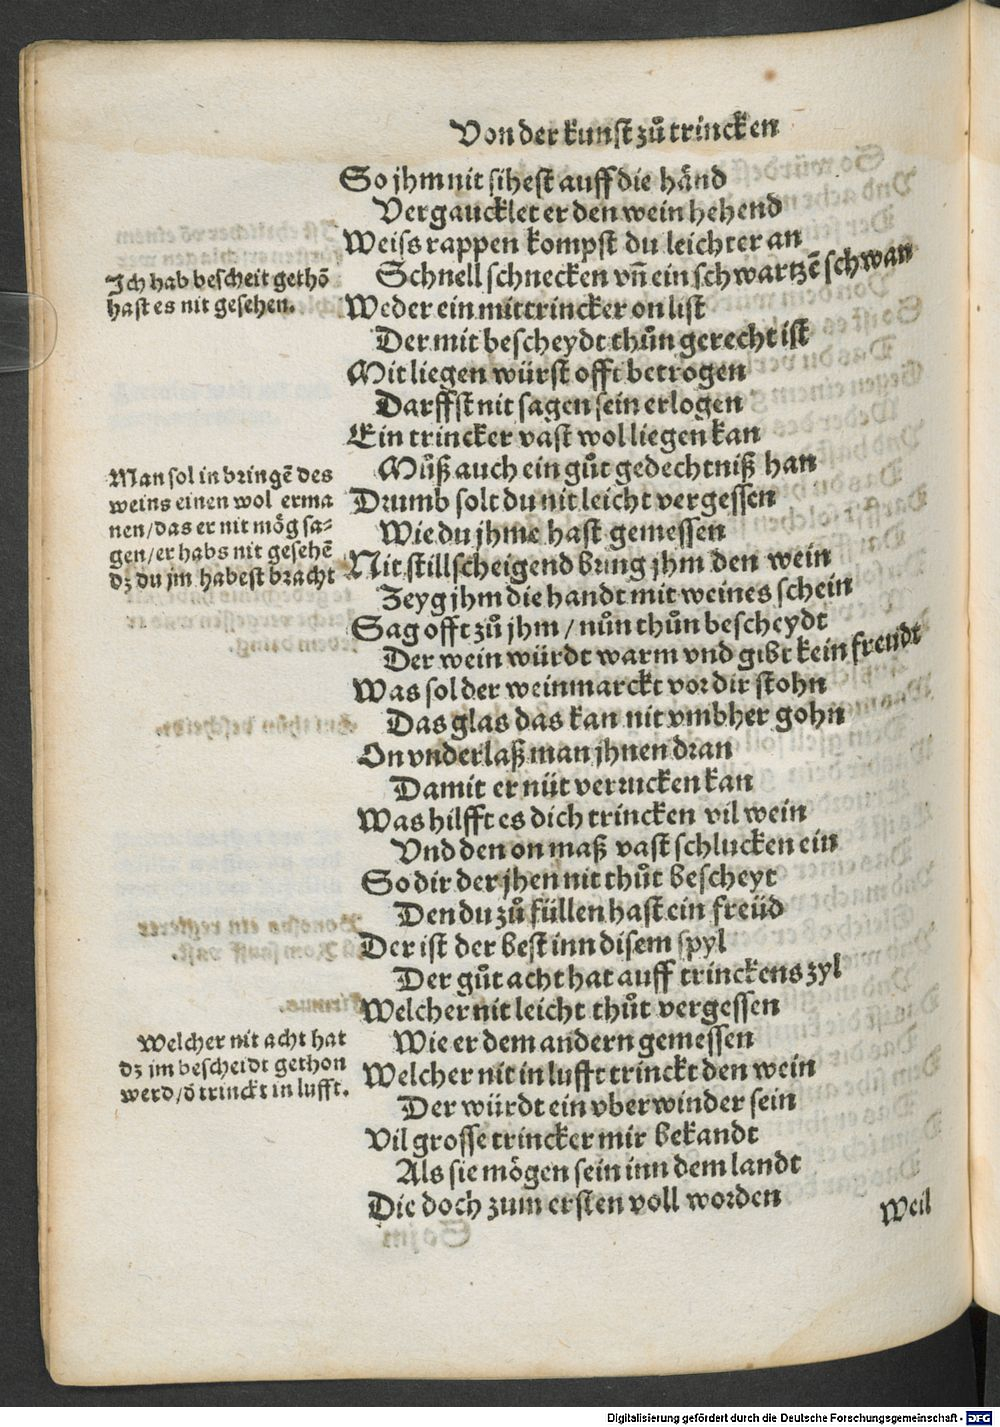 Von der kunst zů trincken
So jhm nit sihest auff die händ
Vergaucklet er den wein hehend
Weiss rappen kompst du leichter an
Schnell schnecken vñ ein schwartzẽ schwan
Ich hab bescheit gethõ
hast es nit gesehen.
Weder ein mittrincker on list
Der mit bescheydt thůn gerecht ist
Mit liegen würst offt betrogen
Darffst nit sagen sein erlogen
Ein trincker vast wol liegen kan
Můß auch ein gůt gedechtniß han
Man sol in bringẽ des
weins einen wol erma
nen/das er nit mög sa-
gen/er habs nit gesehẽ
dz du jm habest bracht
Drumb solt du nit leicht vergessen
Wie du jhme hast gemessen
Nit stillscheigend bring jhm den wein
Zeyg jhm die handt mit weines schein
Sag offt zů jhm / nůn thůn bescheydt
Der wein würdt warm vnd gibt kein freudt
Was sol der weinmarckt vor dir stohn
Das glas das kan nit vmbher gohn
On vnderlaß man jhnen dran
Damit er nüt verrucken kan
Was hilfft es dich trincken vil wein
Vnd den on maß vast schlucken ein
So dir der jhen nit thůt bescheyt
Den du zů füllen hast ein freüd
Der ist der best inn disem spyl
Der gůt acht hat auff trinckens zyl
Welcher nit leicht thůt vergessen
Wie er dem andern gemessen
Welcher nit acht hat
dz jm bescheidt gethon
werd/ð trinckt in lufft.
Welcher nit in lufft trinckt den wein
Der würdt ein vberwinder sein
Vil grosse trincker mir bekandt
Als sie mögen sein inn dem landt
Die doch zum ersten voll worden
Weil
Digitalisierung gefördert durch die Deutsche Forschungsgemeinschaft - DFG